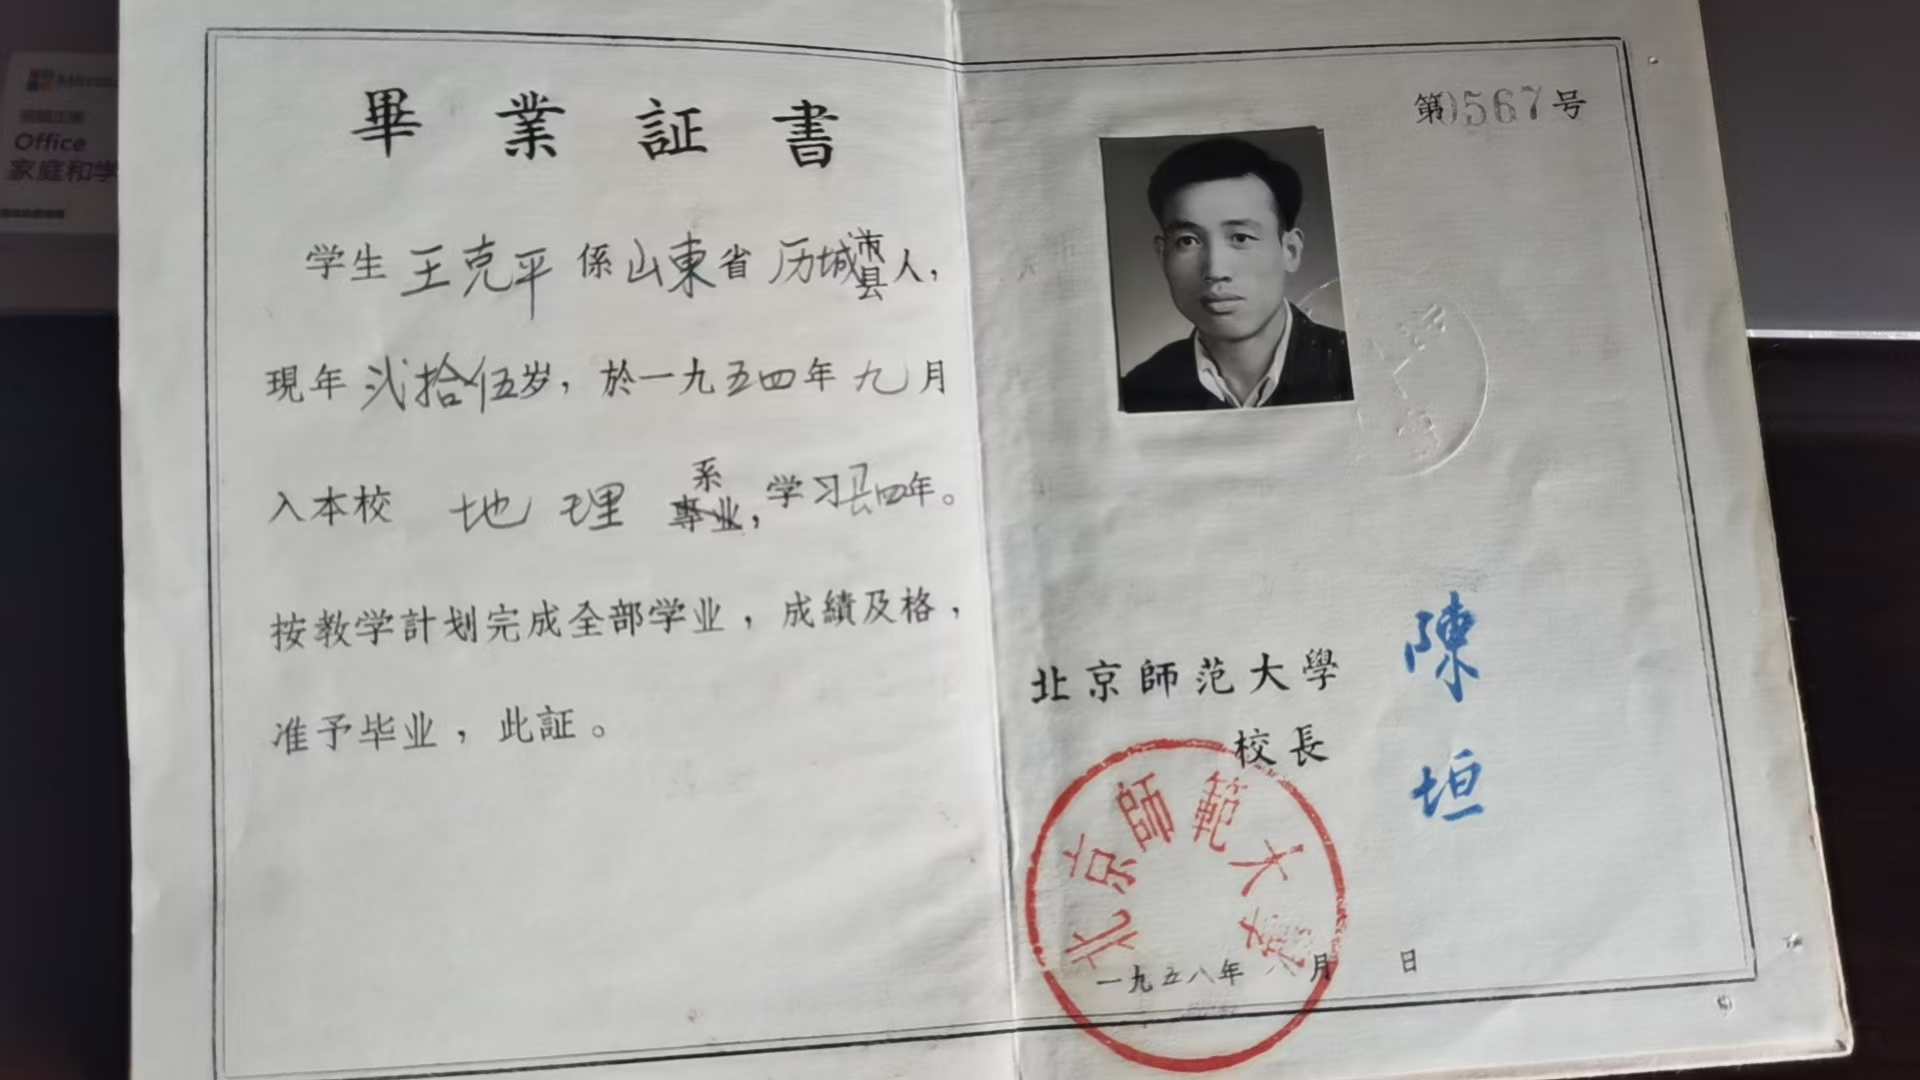 畢業証書
学生王克平係山東省历城市县人，
現年弍拾伍岁，於一九五四年九月
入本校地理系專业，学习四年。
按教学計划完成全部学业，成績及格，
准予毕业，此証。
第0567号
北京師范大學
校長
陳垣
北京師範大學
一九五八年八月 日
Office
家庭和学